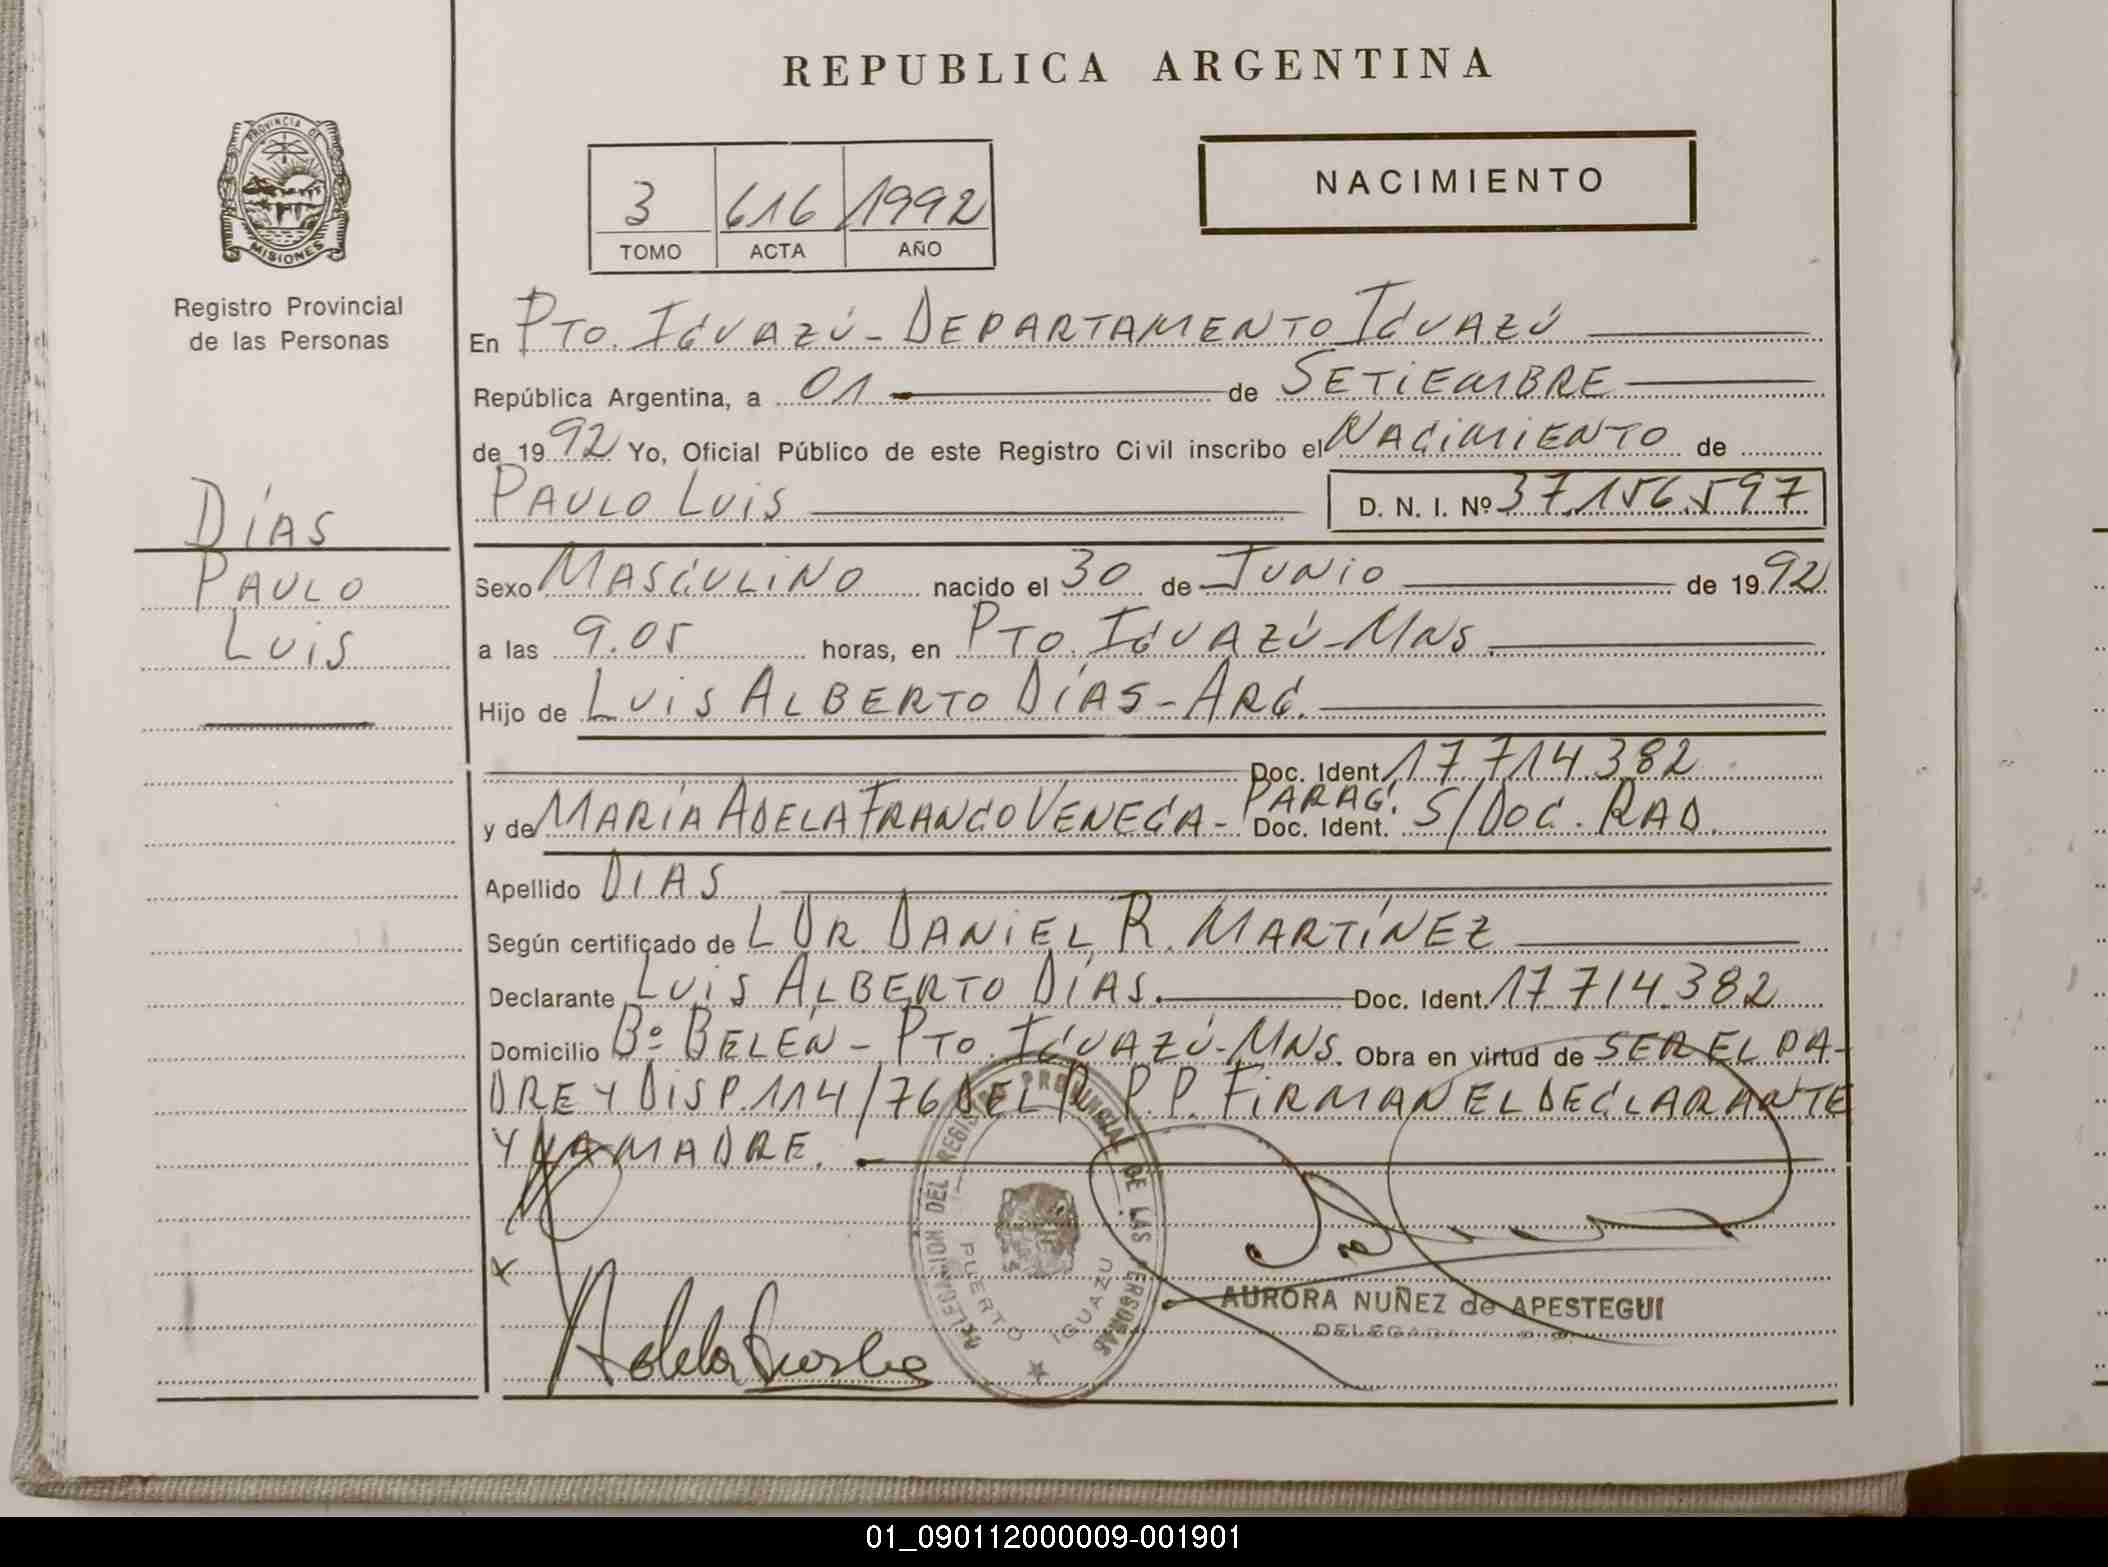 REPUBLICA ARGENTINA
PROVINCIA DE
MISIONES
Registro Provincial
de las Personas
3 616 1992
TOMO ACTA AÑO
NACIMIENTO
En PTO. IGUAZÚ - DEPARTAMENTO IGUAZÚ
República Argentina, a 01 de SETIEMBRE
de 1992 Yo, Oficial Público de este Registro Civil inscribo el NACIMIENTO de
PAULO LUIS D. N. I. Nº 37.156.597
DÍAS
PAULO
LUIS
Sexo MASCULINO nacido el 30 de JUNIO de 1992
a las 9.05 horas, en PTO. IGUAZÚ - MNS.
Hijo de LUIS ALBERTO DÍAS - ARG.
Doc. Ident. 17.714.382
y de MARÍA ADELA FRANCO VENEGA - PARAG. Doc. Ident. S/DOC. RAD.
Apellido DIAS
Según certificado de L DR DANIEL R. MARTÍNEZ
Declarante LUIS ALBERTO DÍAS. Doc. Ident. 17.714.382
Domicilio Bº BELÉN - PTO. IGUAZÚ - MNS. Obra en virtud de SER EL PA-
DRE Y DISP. 114/76 DEL R. P. P. FIRMAN EL DECLARANTE
Y LA MADRE.
DELEGACION DEL REGISTRO PROVINCIAL DE LAS PERSONAS
PUERTO IGUAZU
AURORA NUÑEZ de APESTEGUI
Adela
01_090112000009-001901